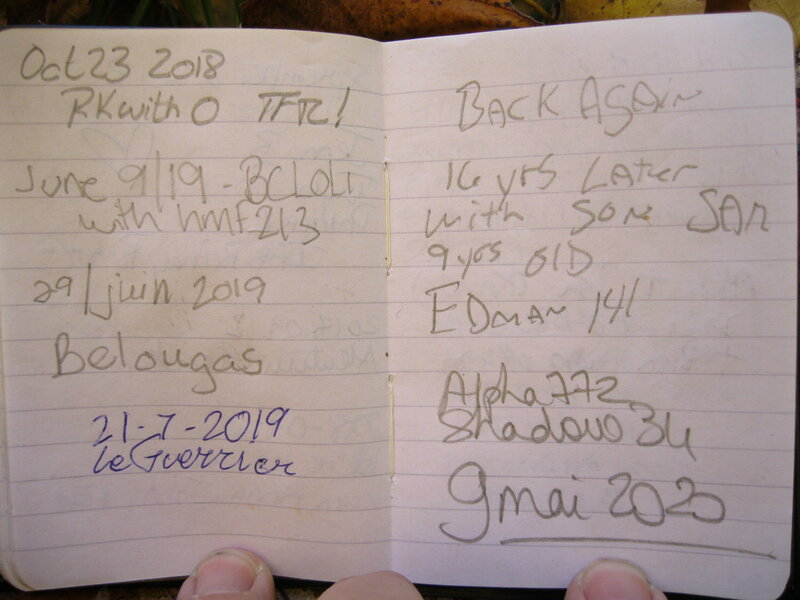 Oct 23 2018
RKwithO TFTC!
June 9/19 - BCLOLi
with hmf213
29/juin 2019
Belougas
21-7-2019
LeGuerrier
BACK AGAiN
16 yrs LATer
with SON SAM
9 yrs OlD
EDMAN 141
Alpha772
Shadow34
9 mai 2020